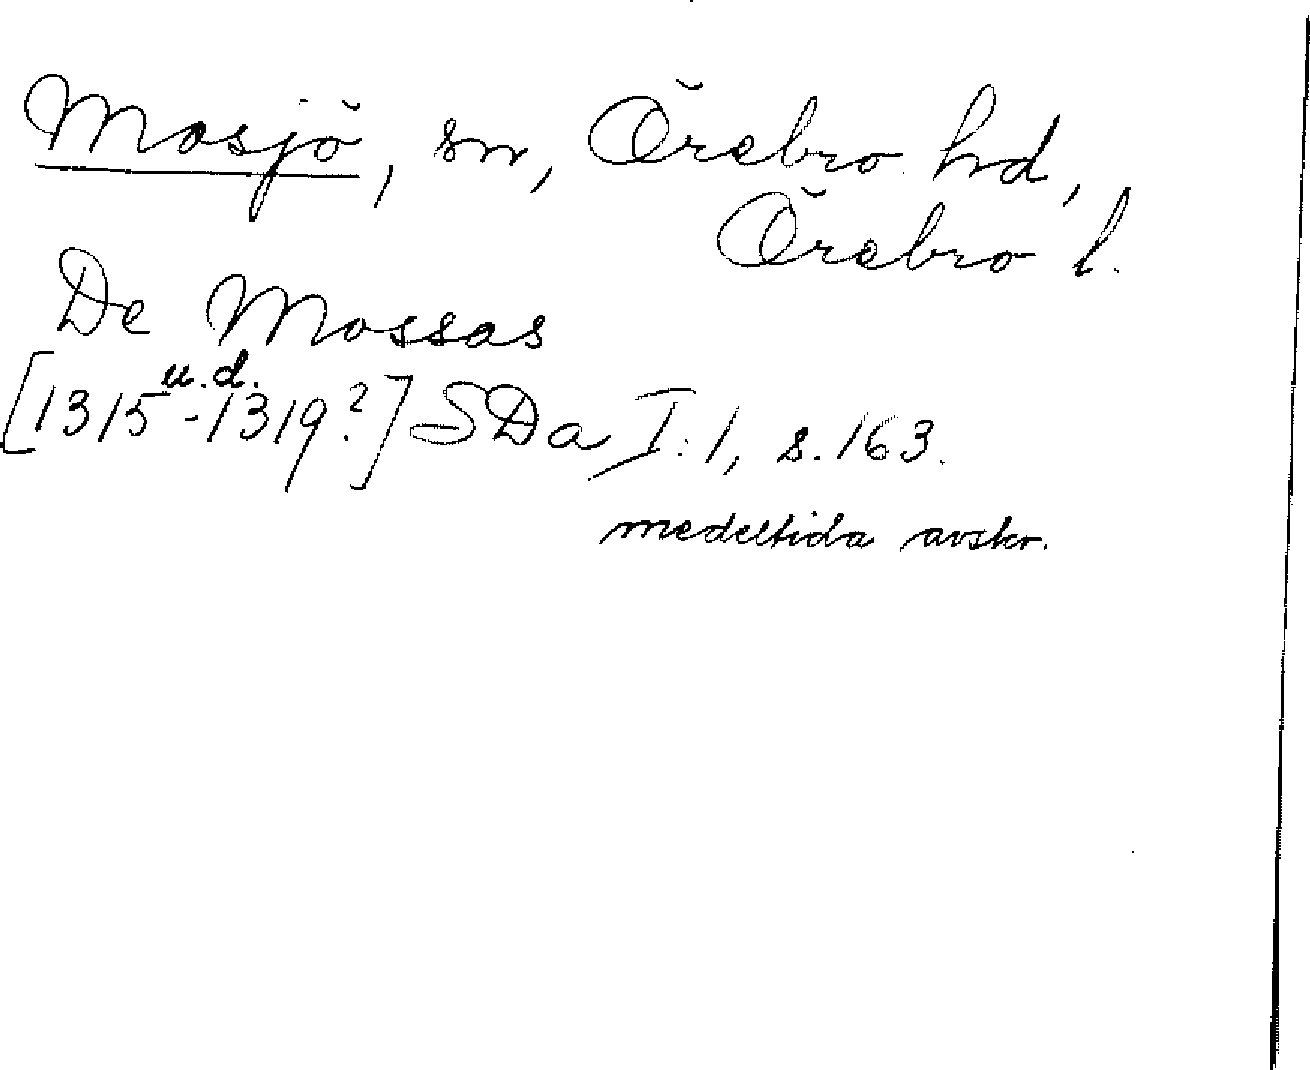 Mosjö, sn, Örebro hd,
Örebro l.
De Mossas
u.d.
[1315-1319?] SDa I:1, s. 163.
medeltida avskr.